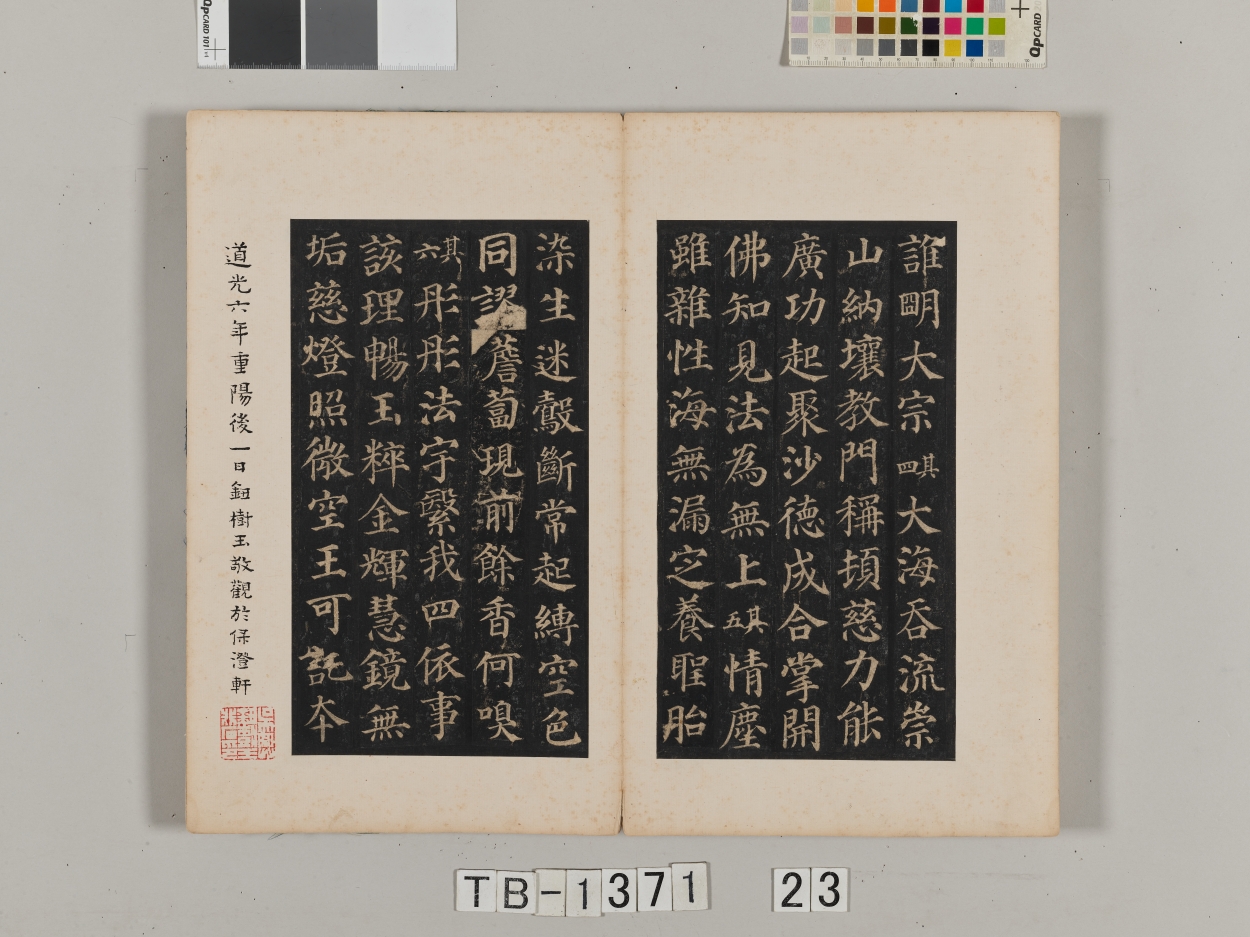 誰明大宗其四大海吞流崇
山納壤教門稱頓慈力能
廣功起聚沙德成合掌開
佛知見法為無上其五情塵
雖雜性海無漏定養聖胎
染生迷鷇斷常起縛空色
同謬薝蔔現前餘香何嗅
其六彤彤法宇繄我四依事
該理暢玉粹金輝慧鏡無
垢慈燈照微空王可託本
道光六年重陽後一日鈕樹玉敬觀於保澄軒
QPCARD 101
QPCARD
TB-1371 23